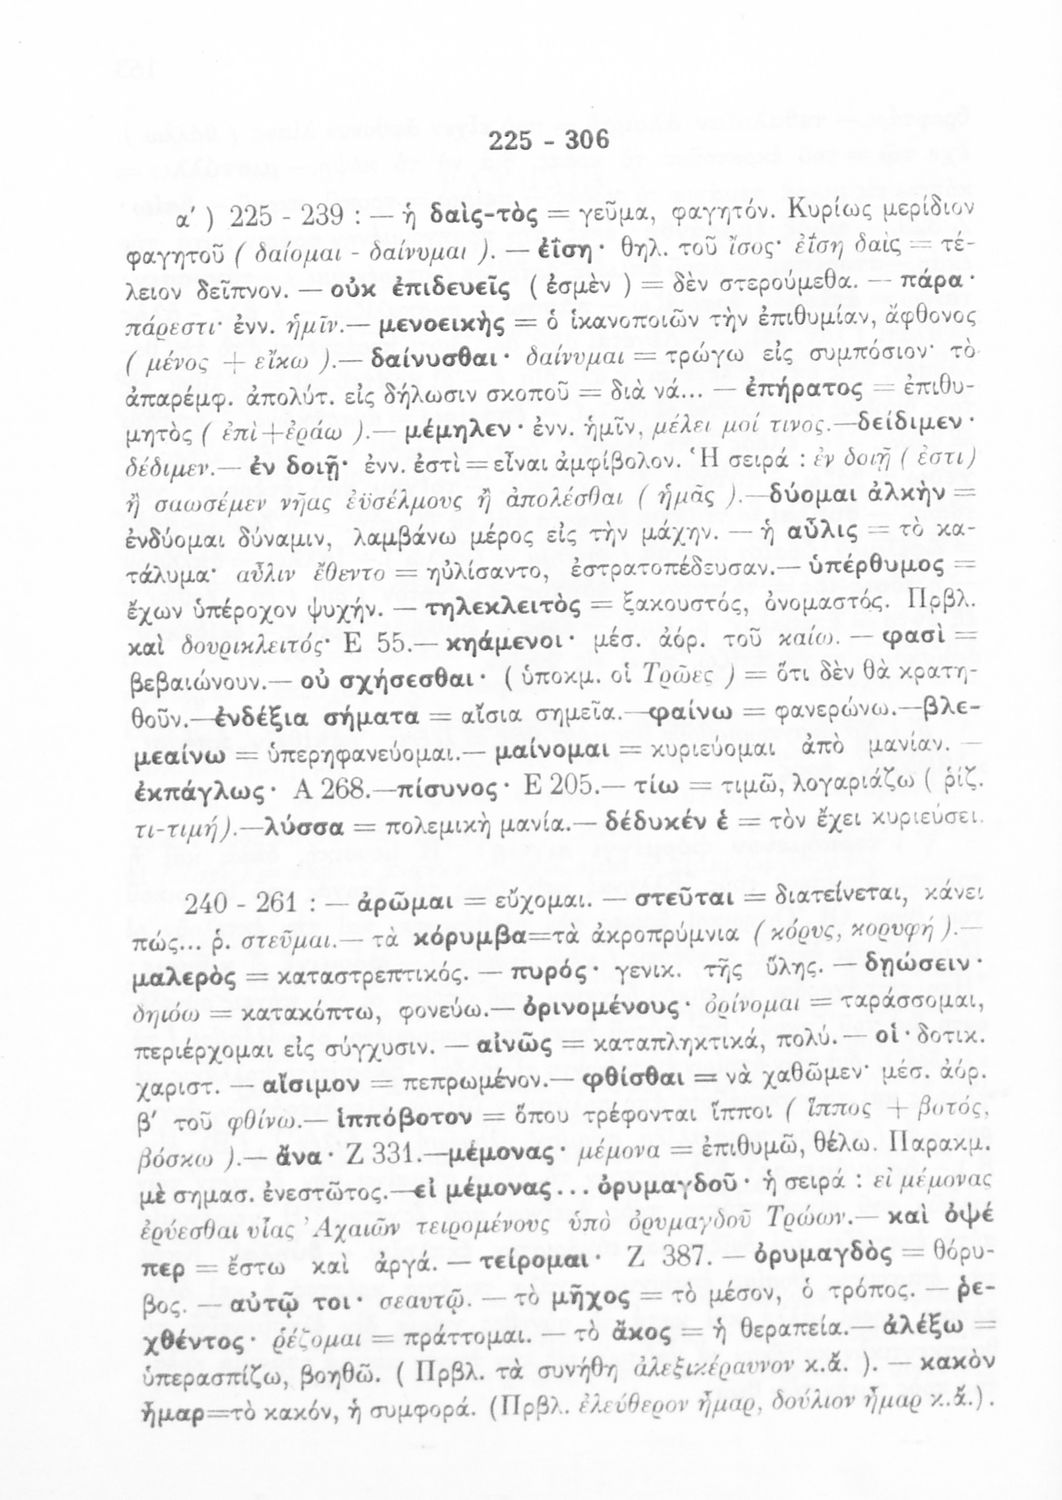 225 - 306
α′ ) 225 - 239 : — ἡ δαὶς-τὸς = γεῦμα, φαγητόν. Κυρίως μερίδιον
φαγητοῦ ( δαίομαι - δαίνυμαι ). — ἐΐση · θηλ. τοῦ ἶσος· ἐΐση δαὶς = τέ-
λειον δεῖπνον. — οὐκ ἐπιδευεῖς ( ἐσμὲν ) = δὲν στερούμεθα. — πάρα ·
πάρεστι· ἐνν. ἡμῖν.— μενοεικὴς = ὁ ἱκανοποιῶν τὴν ἐπιθυμίαν, ἄφθονος
( μένος + εἴκω ).— δαίνυσθαι · δαίνυμαι = τρώγω εἰς συμπόσιον· τὸ
ἀπαρέμφ. ἀπολύτ. εἰς δήλωσιν σκοποῦ = διὰ νά... — ἐπήρατος = ἐπιθυ-
μητὸς ( ἐπὶ+ἐράω ).— μέμηλεν · ἐνν. ἡμῖν, μέλει μοί τινος.—δείδιμεν ·
δέδιμεν.— ἐν δοιῇ· ἐνν. ἐστὶ = εἶναι ἀμφίβολον. Ἡ σειρά : ἐν δοιῇ ( ἐστι)
ἢ σαωσέμεν νῆας ἐϋσέλμους ἢ ἀπολέσθαι ( ἡμᾶς ).—δύομαι ἀλκὴν =
ἐνδύομαι δύναμιν, λαμβάνω μέρος εἰς τὴν μάχην. — ἡ αὖλις = τὸ κα-
τάλυμα· αὖλιν ἔθεντο = ηὐλίσαντο, ἐστρατοπέδευσαν.— ὑπέρθυμος =
ἔχων ὑπέροχον ψυχήν. — τηλεκλειτὸς = ξακουστός, ὀνομαστός. Πρβλ.
καὶ δουρικλειτός· Ε 55.— κηάμενοι · μέσ. ἀόρ. τοῦ καίω. — φασὶ =
βεβαιώνουν.— οὐ σχήσεσθαι · ( ὑποκμ. οἱ Τρῶες ) = ὅτι δὲν θὰ κρατη-
θοῦν.—ἐνδέξια σήματα = αἴσια σημεῖα.—φαίνω = φανερώνω.—βλε-
μεαίνω = ὑπερηφανεύομαι.— μαίνομαι = κυριεύομαι ἀπὸ μανίαν. —
ἐκπάγλως · Α 268.—πίσυνος · Ε 205.— τίω = τιμῶ, λογαριάζω ( ῥίζ.
τι-τιμή).—λύσσα = πολεμικὴ μανία.— δέδυκέν ἑ = τὸν ἔχει κυριεύσει.
240 - 261 : — ἀρῶμαι = εὔχομαι. — στεῦται = διατείνεται, κάνει
πώς... ῥ. στεῦμαι.— τὰ κόρυμβα=τὰ ἀκροπρύμνια ( κόρυς, κορυφή ).—
μαλερὸς = καταστρεπτικός. — πυρός · γενικ. τῆς ὕλης. — δῃώσειν ·
δηιόω = κατακόπτω, φονεύω.— ὀρινομένους · ὀρίνομαι = ταράσσομαι,
περιέρχομαι εἰς σύγχυσιν. — αἰνῶς = καταπληκτικά, πολύ. — οἱ · δοτικ.
χαριστ. — αἴσιμον = πεπρωμένον.— φθίσθαι = νὰ χαθῶμεν· μέσ. ἀόρ.
β′ τοῦ φθίνω.— ἱππόβοτον = ὅπου τρέφονται ἵπποι ( ἵππος + βοτός,
βόσκω ).— ἄνα · Ζ 331.—μέμονας · μέμονα = ἐπιθυμῶ, θέλω. Παρακμ.
μὲ σημασ. ἐνεστῶτος.—εἰ μέμονας... ὀρυμαγδοῦ · ἡ σειρά : εἰ μέμονας
ἐρύεσθαι υἷας Ἀχαιῶν τειρομένους ὑπὸ ὀρυμαγδοῦ Τρώων.— καὶ ὀψέ
περ = ἔστω καὶ ἀργά. — τείρομαι · Ζ 387. — ὀρυμαγδὸς = θόρυ-
βος. — αὐτῷ τοι · σεαυτῷ. — τὸ μῆχος = τὸ μέσον, ὁ τρόπος. — ῥε-
χθέντος · ῥέζομαι = πράττομαι. — τὸ ἄκος = ἡ θεραπεία.— ἀλέξω =
ὑπερασπίζω, βοηθῶ. ( Πρβλ. τὰ συνήθη ἀλεξικέραυνον κ.ἄ. ). — κακὸν
ἦμαρ=τὸ κακόν, ἡ συμφορά. (Πρβλ. ἐλεύθερον ἦμαρ, δούλιον ἦμαρ κ.ἄ.).